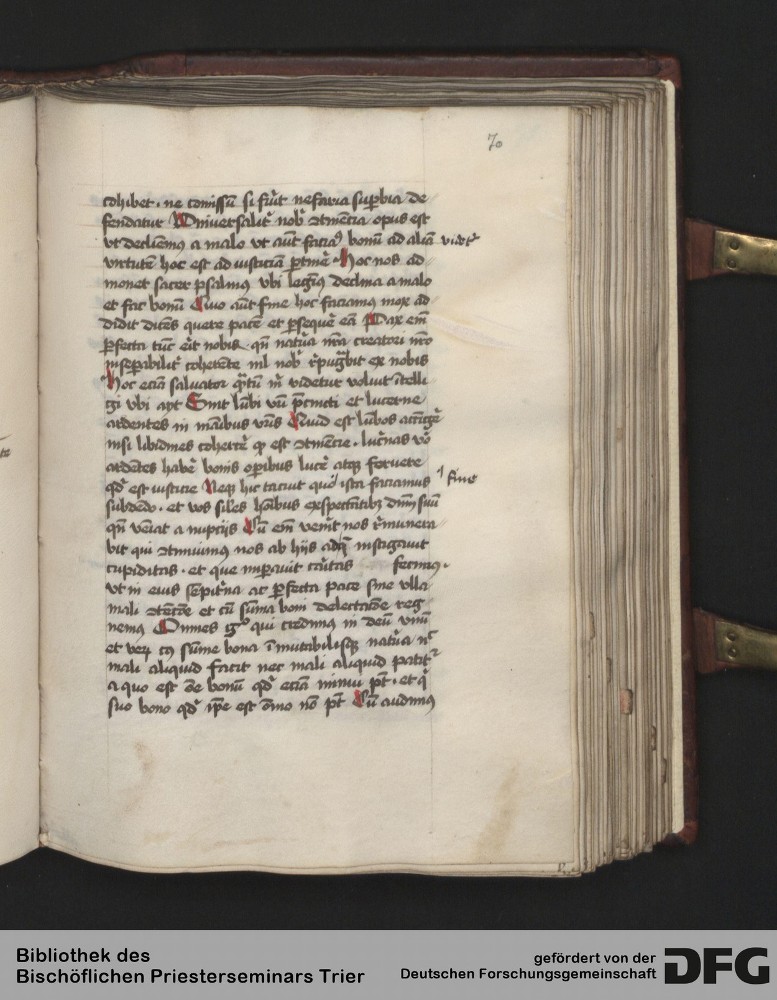 70
cohibet · ne comissū si fuit nefaria supbia de
fendatur Vniversalit nob ɔtinēcia opus est
vt declinemus a malo vt aūt faciaꝰ bonū ad aliā videt
virtutē hoc est ad iusticiā ptinē · Hoc nos ad
monet sacer psalmus vbi legimꝰ declina a malo
et fac bonū Quo aūt fine hoc faciamus mox ad
didit dicēs quere pacē et psequē eā Pax em̄
pfecta tūc erit nobis · qn̄ natura nr̄a creatori nr̄o
inseparabilit coherente nil nob repugbit ex nobis
Hoc eciā saluator qtū m videtur voluit ītelli
gi vbi ayt Sint lūbi vr̄i p̄cincti et lucerne
ardentes in manibus vr̄is Quid est lūbos accīgē
nisi libidines cohercē qᵈ est ɔtinēcie · lucernas vo
ardētes habē bonis opibus lucē atqꝫ fervere
qd est iusticie Neqꝫ hic tacuit quo istā faciamus fine
subdēdo · et vos siles hoibus expectantibꝫ dnm suū
qn̄ veniat a nuptiis Cū em̄ venit nos remunera
bit qui ɔtinuimus nos ab hiis adqꝫ instigauit
cupiditas · et que imperauit caritas fecimus ·
vt in eius sēpitna ac pfecta pace sine vlla
mali ɔtēcōe et cū sūma boni delectacōe reg
nemus Omnes gᵒ qui credimus in deū vinū
et verū cuius sūme bona īmutabilisqꝫ natura nᶜ
mali aliquid facit nec mali aliquid patit
a quo est ōe bonū qd eciā minui pt · et q
suo bono qd ipe est ōino nō pt Cū audimus
Bibliothek des
Bischöflichen Priesterseminars Trier
gefördert von der
Deutschen Forschungsgemeinschaft
DFG